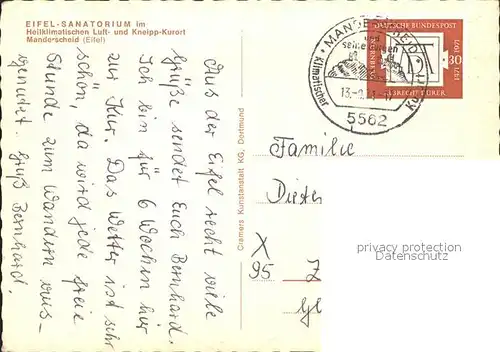 EIFEL-SANATORIUM im
Heilklimatischen Luft- und Kneipp-Kurort
Manderscheid (Eifel)
Aus der Eifel recht viele
Grüße sendet Euch Bernhard.
Ich bin für 6 Wochen hier
zur Kur. Das Wetter ist sehr
schön, da wird jede freie
Stunde zum Wandern aus-
genutzt. Gruß Bernhard.
Cramers Kunstanstalt KG, Dortmund
MANDERSCHEID
und
seine
Klimatischer
Kurort
5562
DEUTSCHE BUNDESPOST
30
1471
1971
ALBRECHT DÜRER
Familie
Dieter
X
95
privacy protection
AnsichtskartenVersand.com